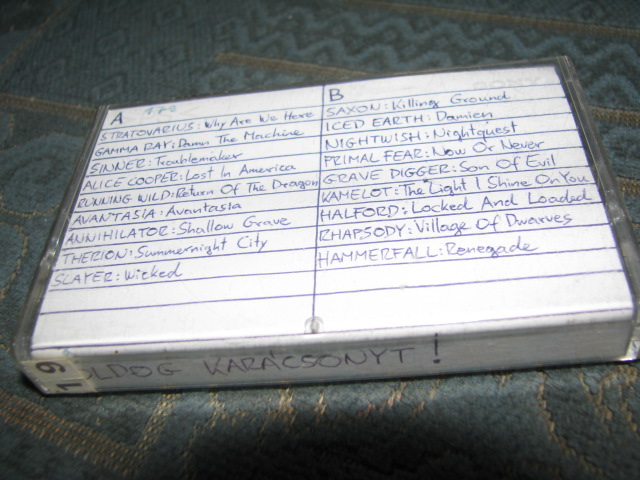 A
STRATOVARIUS: Why Are We Here
GAMMA RAY: Damn The Machine
SINNER: Troublemaker
ALICE COOPER: Lost In America
RUNNING WILD: Return Of The Dragon
AVANTASIA: Avantasia
ANNIHILATOR: Shallow Grave
THERION: Summernight City
SLAYER: Wicked
B
SAXON: Killing Ground
ICED EARTH: Damien
NIGHTWISH: Nightquest
PRIMAL FEAR: Now Or Never
GRAVE DIGGER: Son Of Evil
KAMELOT: The Light I Shine On You
HALFORD: Locked And Loaded
RHAPSODY: Village Of Dwarves
HAMMERFALL: Renegade
19
OLDOG KARÁCSONYT!